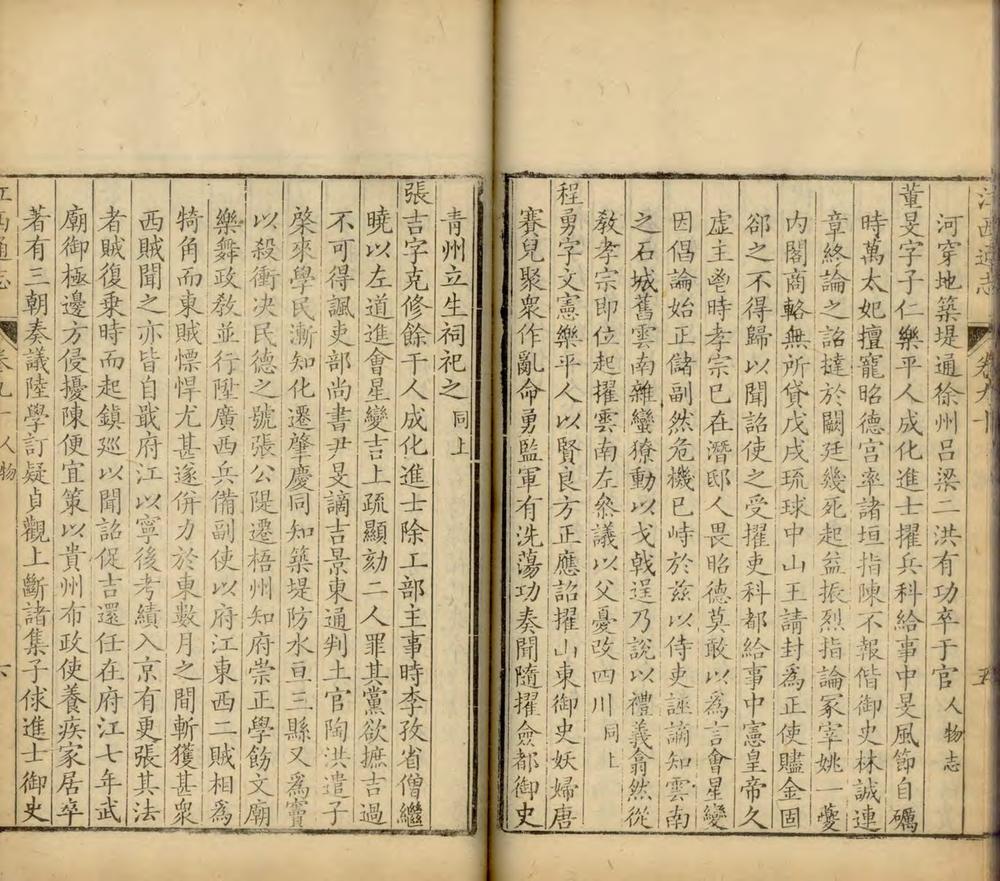 江西通志 卷九十 五
河穿地築堤通徐州呂梁二洪有功卒于官人物志
董旻字子仁樂平人成化進士擢兵科給事中旻風節自礪
時萬太妃擅寵昭德宮率諸垣指陳不報偕御史林誠連
章終論之詔撻於闕廷幾死起益振烈指論冢宰姚一夔
内閣商輅無所貸戊戌琉球中山王請封爲正使贐金固
郤之不得歸以聞詔使之受擢吏科都給事中憲皇帝久
虛主鬯時孝宗已在潛邸人畏昭德莫敢以爲言會星變
因倡論始正儲副然危機已峙於兹以侍吏誣謫知雲南
之石城舊雲南雜蠻獠動以戈戟逞乃說以禮義翕然從
敎孝宗即位起擢雲南左叅議以父憂改四川同上
程勇字文憲樂平人以賢良方正應詔擢山東御史妖婦唐
賽兒聚衆作亂命勇監軍有洗蕩功奏聞隨擢僉都御史
青州立生祠祀之同上
張吉字克修餘干人成化進士除工部主事時李孜省僧繼
曉以左道進會星變吉上疏顯劾二人罪其黨欲摭吉過
不可得諷吏部尚書尹旻謫吉景東通判土官陶洪遣子
棨來學民漸知化遷肇慶同知築堤防水亘三縣又爲竇
以殺衝决民德之號張公隄遷梧州知府崇正學飭文廟
樂舞政敎並行陞廣西兵備副使以府江東西二賊相爲
犄角而東賊慓悍尤甚遂併力於東數月之間斬獲甚衆
西賊聞之亦皆自戢府江以寧後考績入京有更張其法
者賊復乗時而起鎮廵以聞詔促吉還任在府江七年武
廟御極邊方侵擾陳便宜策以貴州布政使養疾家居卒
著有三朝奏議陸學訂疑貞觀上斷諸集子俅進士御史
江西通志 卷九十 人物 六